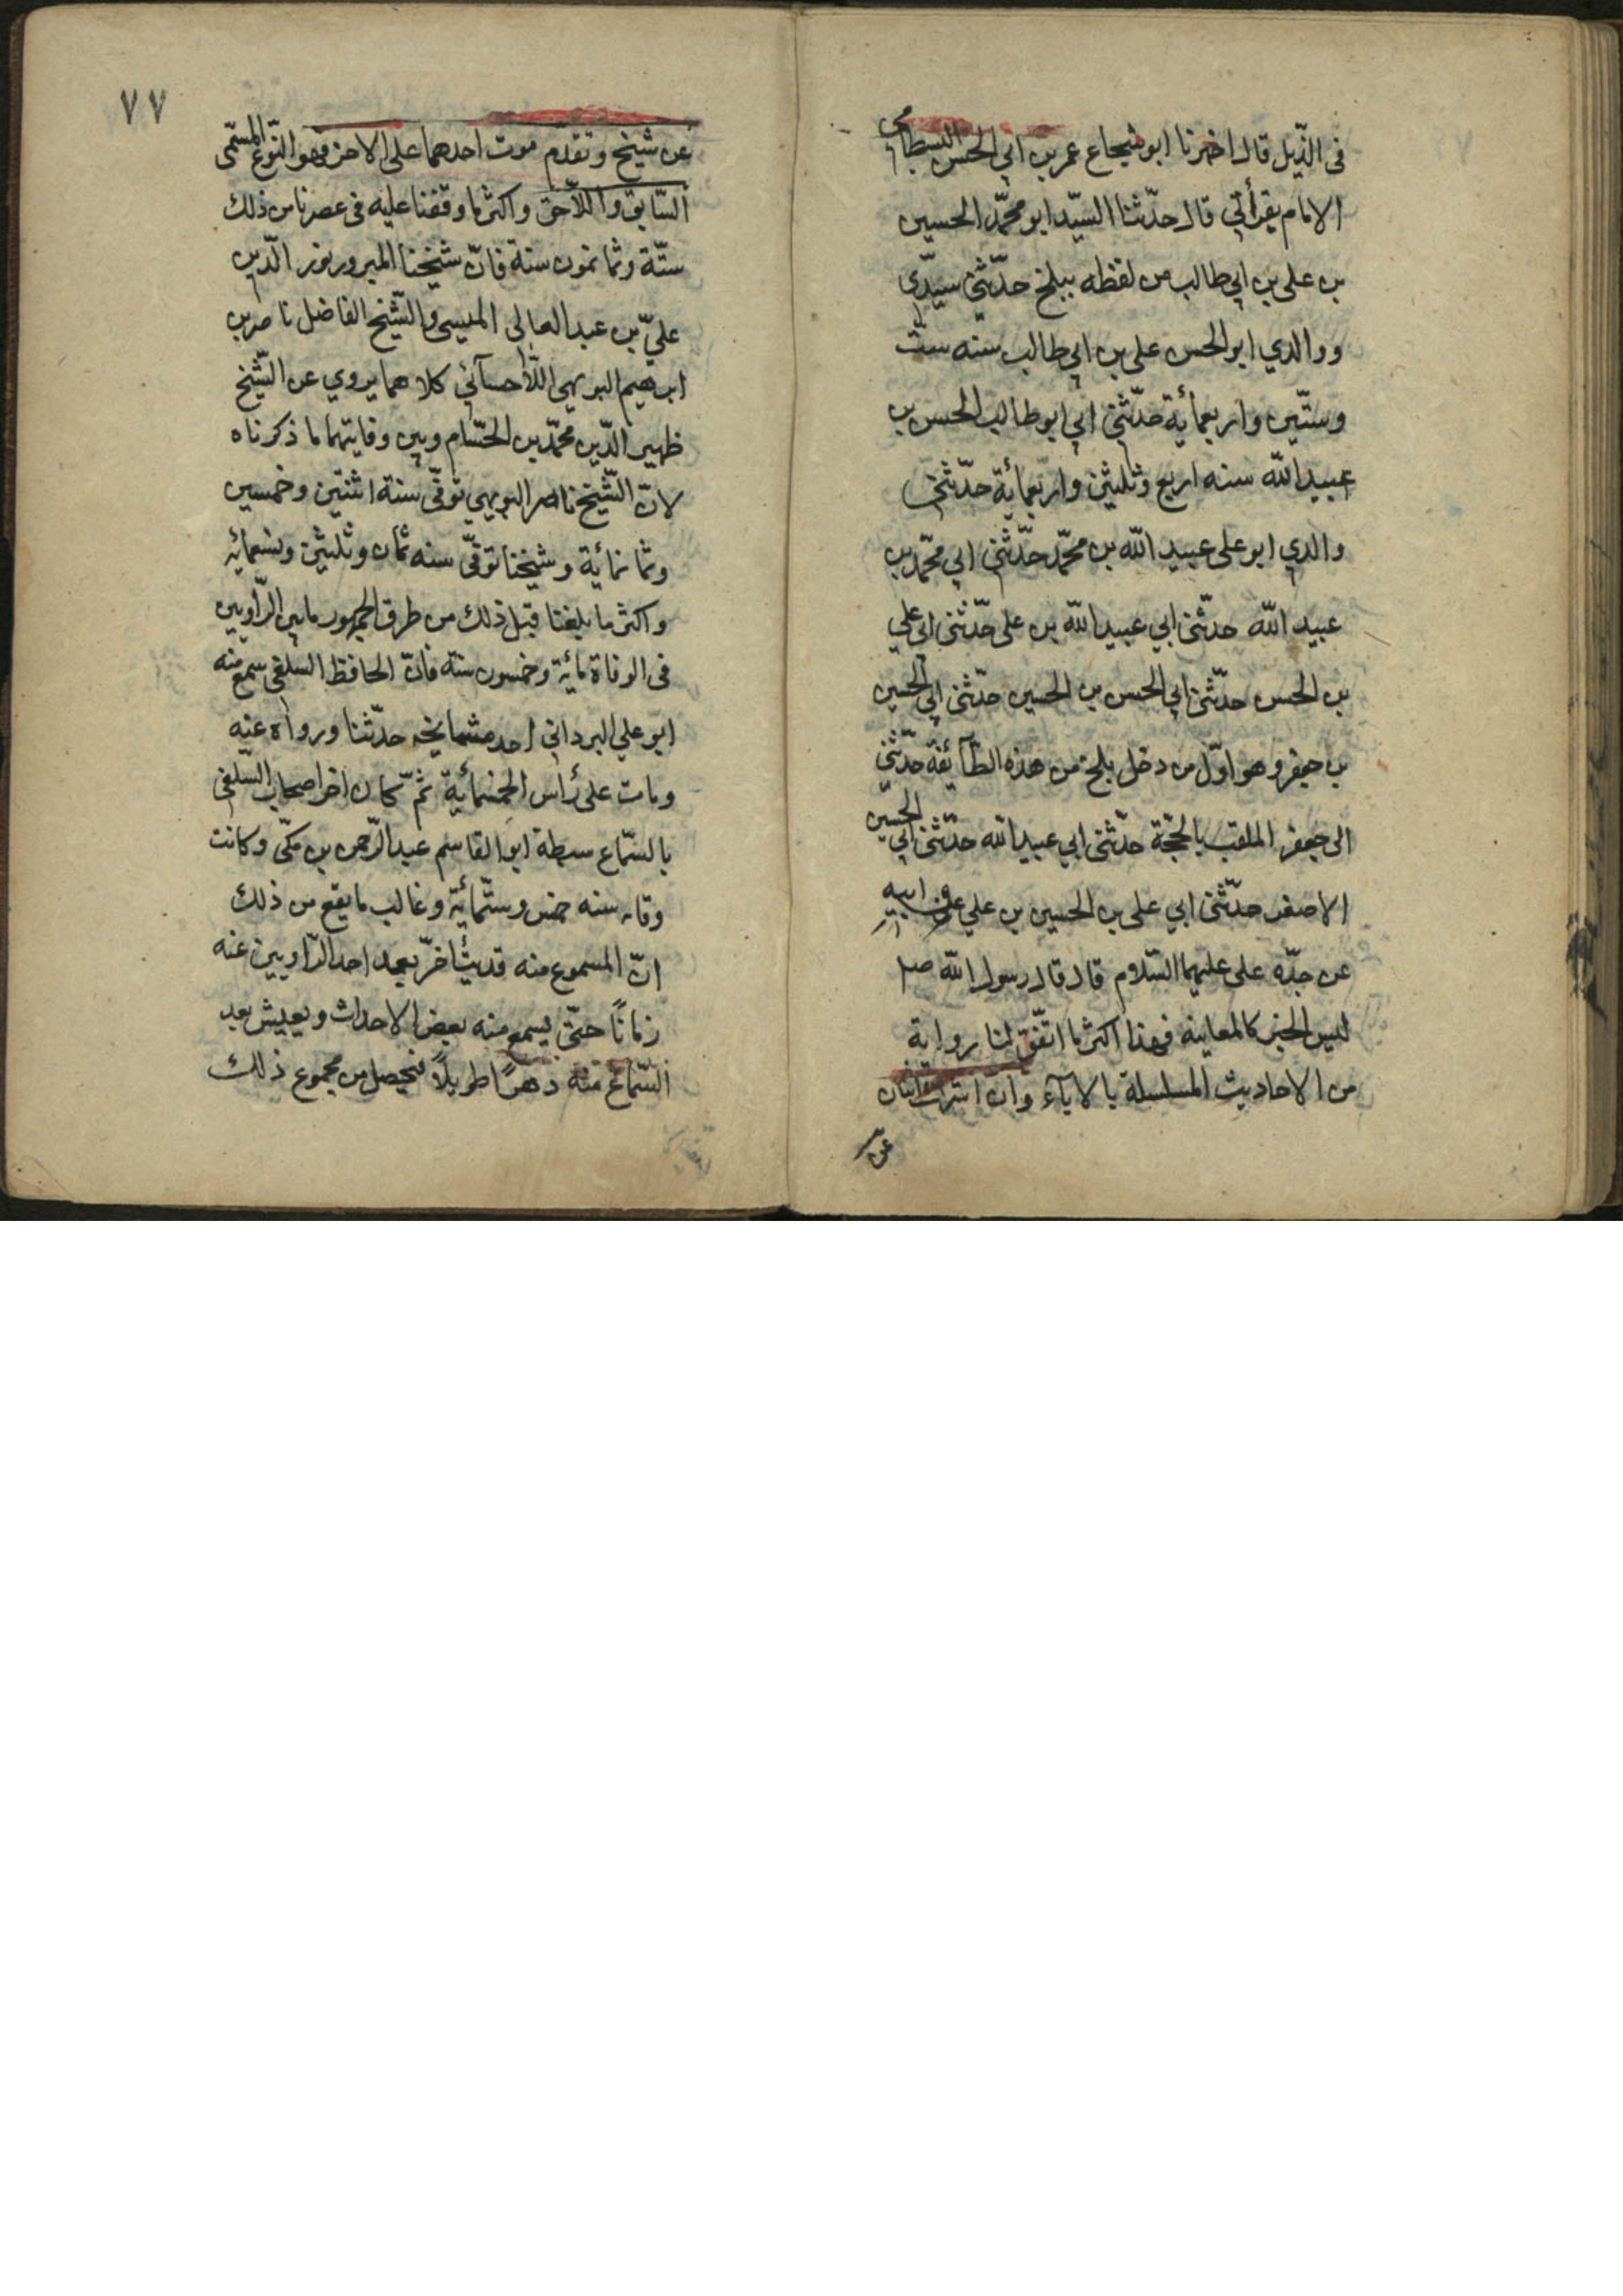 فى الذّيل قال اخبرنا ابو شجاع عمر بن ابي الحسن البسطامى
الامام بقرأتي قال حدّثنا السّيّد ابو محمّد الحسين
بن على بن ابي طالب من لفظه ببلخ حدّثنى سيّدي
ووالدي ابو الحسن على بن ابي طالب سنه ستّ
وستّين واربعمائة حدّثنى ابي ابو طالب الحسن بن
عبيد الله سنه اربع وثلثين واربعمائة حدّثنى
والدي ابو على عبيد الله بن محمّد حدّثنى ابي محمّد بن
عبيد الله حدّثنى ابي عبيد الله بن على حدّثنى ابي علي
بن الحسن حدّثنى ابي الحسن بن الحسين حدّثنى ابي الحسين
بن جعفر وهو اوّل من دخل بلخ من هذه الطّآئفة حدّثنى
ابى جعفر الملقب بالحجّة حدّثنى ابي عبيد الله حدّثنى ابي الحسين
الاصغر حدّثنى ابي على بن الحسين بن علي عن ابيه
عن جدّه على عليهما السّلام قال قال رسول الله ص
ليس الخبر كالمعاينه فهذا اكثر ما اتّفق لنا رواية
من الاحاديث المسلسلة بالاباء وان اشترك اثنان
عن
٧٧
عن شيخ وتقدم موت احدهما على الاخر فهو النّوع المسمّى
السّابق واللّاحق واكثر ما وقفنا عليه فى عصرنا من ذلك
ستّة وثمانون سنة فانّ شيخنا المبرور نور الدّين
عليّ بن عبد العالى الميسى والشّيخ الفاضل ناصر بن
ابرهيم البويهى اللّأحسآئي كلاهما يروي عن الشّيخ
ظهير الدّين محمّد بن الحسّام وبين وفايتهما ما ذكرناه
لانّ الشّيخ ناصر البويهي توفّى سنة اثنتين وخمسين
وثمانمائة وشيخنا توفّى سنه ثمان وثلثين وتسعمائه
واكثر ما بلغنا قبل ذلك من طرق الجمهور ما بين الرّاويين
فى الوفاة مائة وخمسون سنة فانّ الحافظ السلفى سمع منه
ابو علي البرداني احد مشايخه حدّثنا ورواه عنه
ومات على رأس الخمسمائة ثمّ كان اخر اصحاب السّلفى
بالسّماع سبطة ابو القاسم عبد الرّحمن بن مكّى وكانت
وفاته سنه خمس وستّمائة وغالب ما يقع من ذلك
انّ المسموع منه قد يتأخّر بعد احد الرّاويين عنه
زمانًا حتّى يسمع منه بعض الاحداث ويعيش بعد
السّماع منه دهرًا طويلًا فيحصل من مجموع ذلك